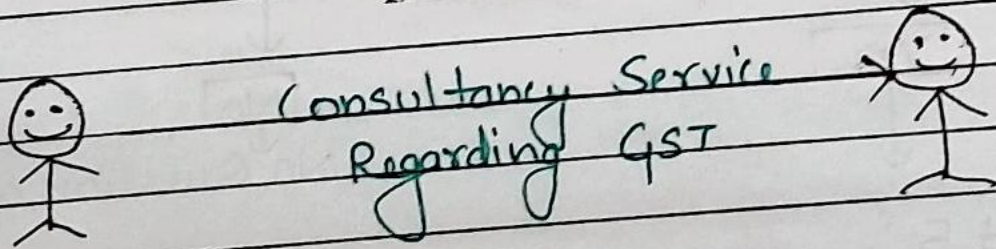 Consultancy Service
Regarding GST